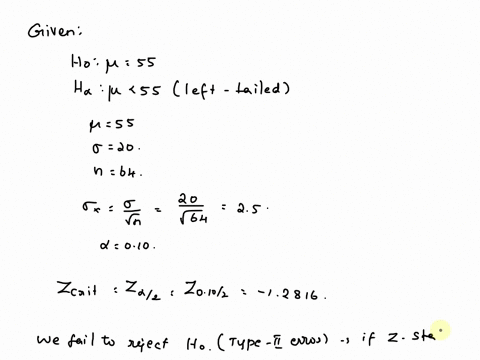 Given:
H0: μ = 55
Hα: μ < 55 (left-tailed)
μ = 55
σ = 20.
n = 64.
σx = σ/√n = 20/√64 = 2.5
α = 0.10.
Zcrit = Zα/2 = Z0.10/2 = -1.2816.
We fail to reject H0. (Type-II error) → if Z-sta